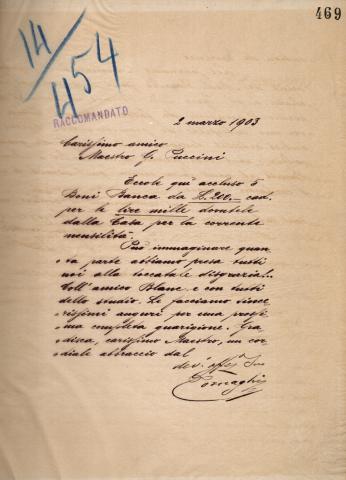 469
14/454
RACCOMANDATO
2 marzo 1903
Carissimo amico
Maestro G. Puccini
Eccole quì accluso 5
Boni Banca da £. 200.— cad.
per le lire mille dovutele
dalla Casa per la corrente
mensilità.
Può immaginare quan-
ta parte abbiamo presa tutti
noi alla toccatale disgrazia!..
Coll'amico Blanc e con tutti
dello studio. Le facciamo since-
rissimi auguri per una prossi-
ma completa guarigione. Gra-
disca, carissimo Maestro, un cor-
diale abbraccio dal
dev. aff. Suo
Tornaghi